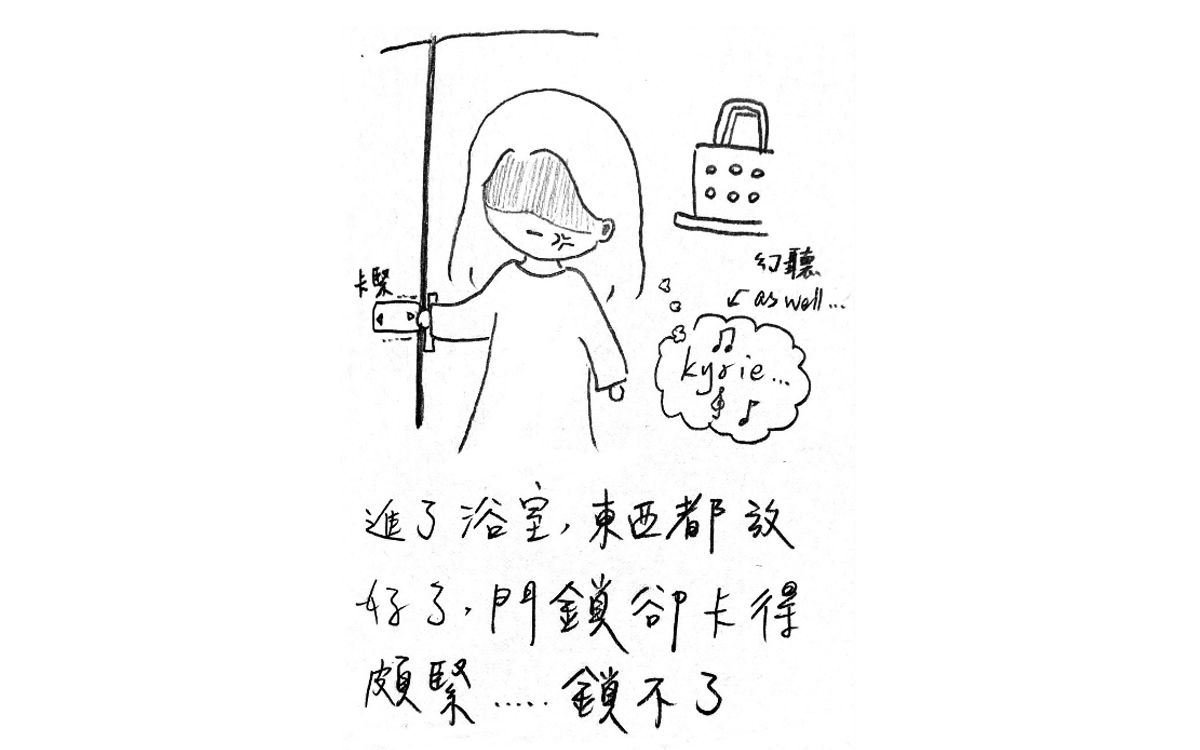 卡緊
幻聽
as well...
kyrie...
進了浴室，東西都放
好了，門鎖卻卡得
頗緊.....鎖不了